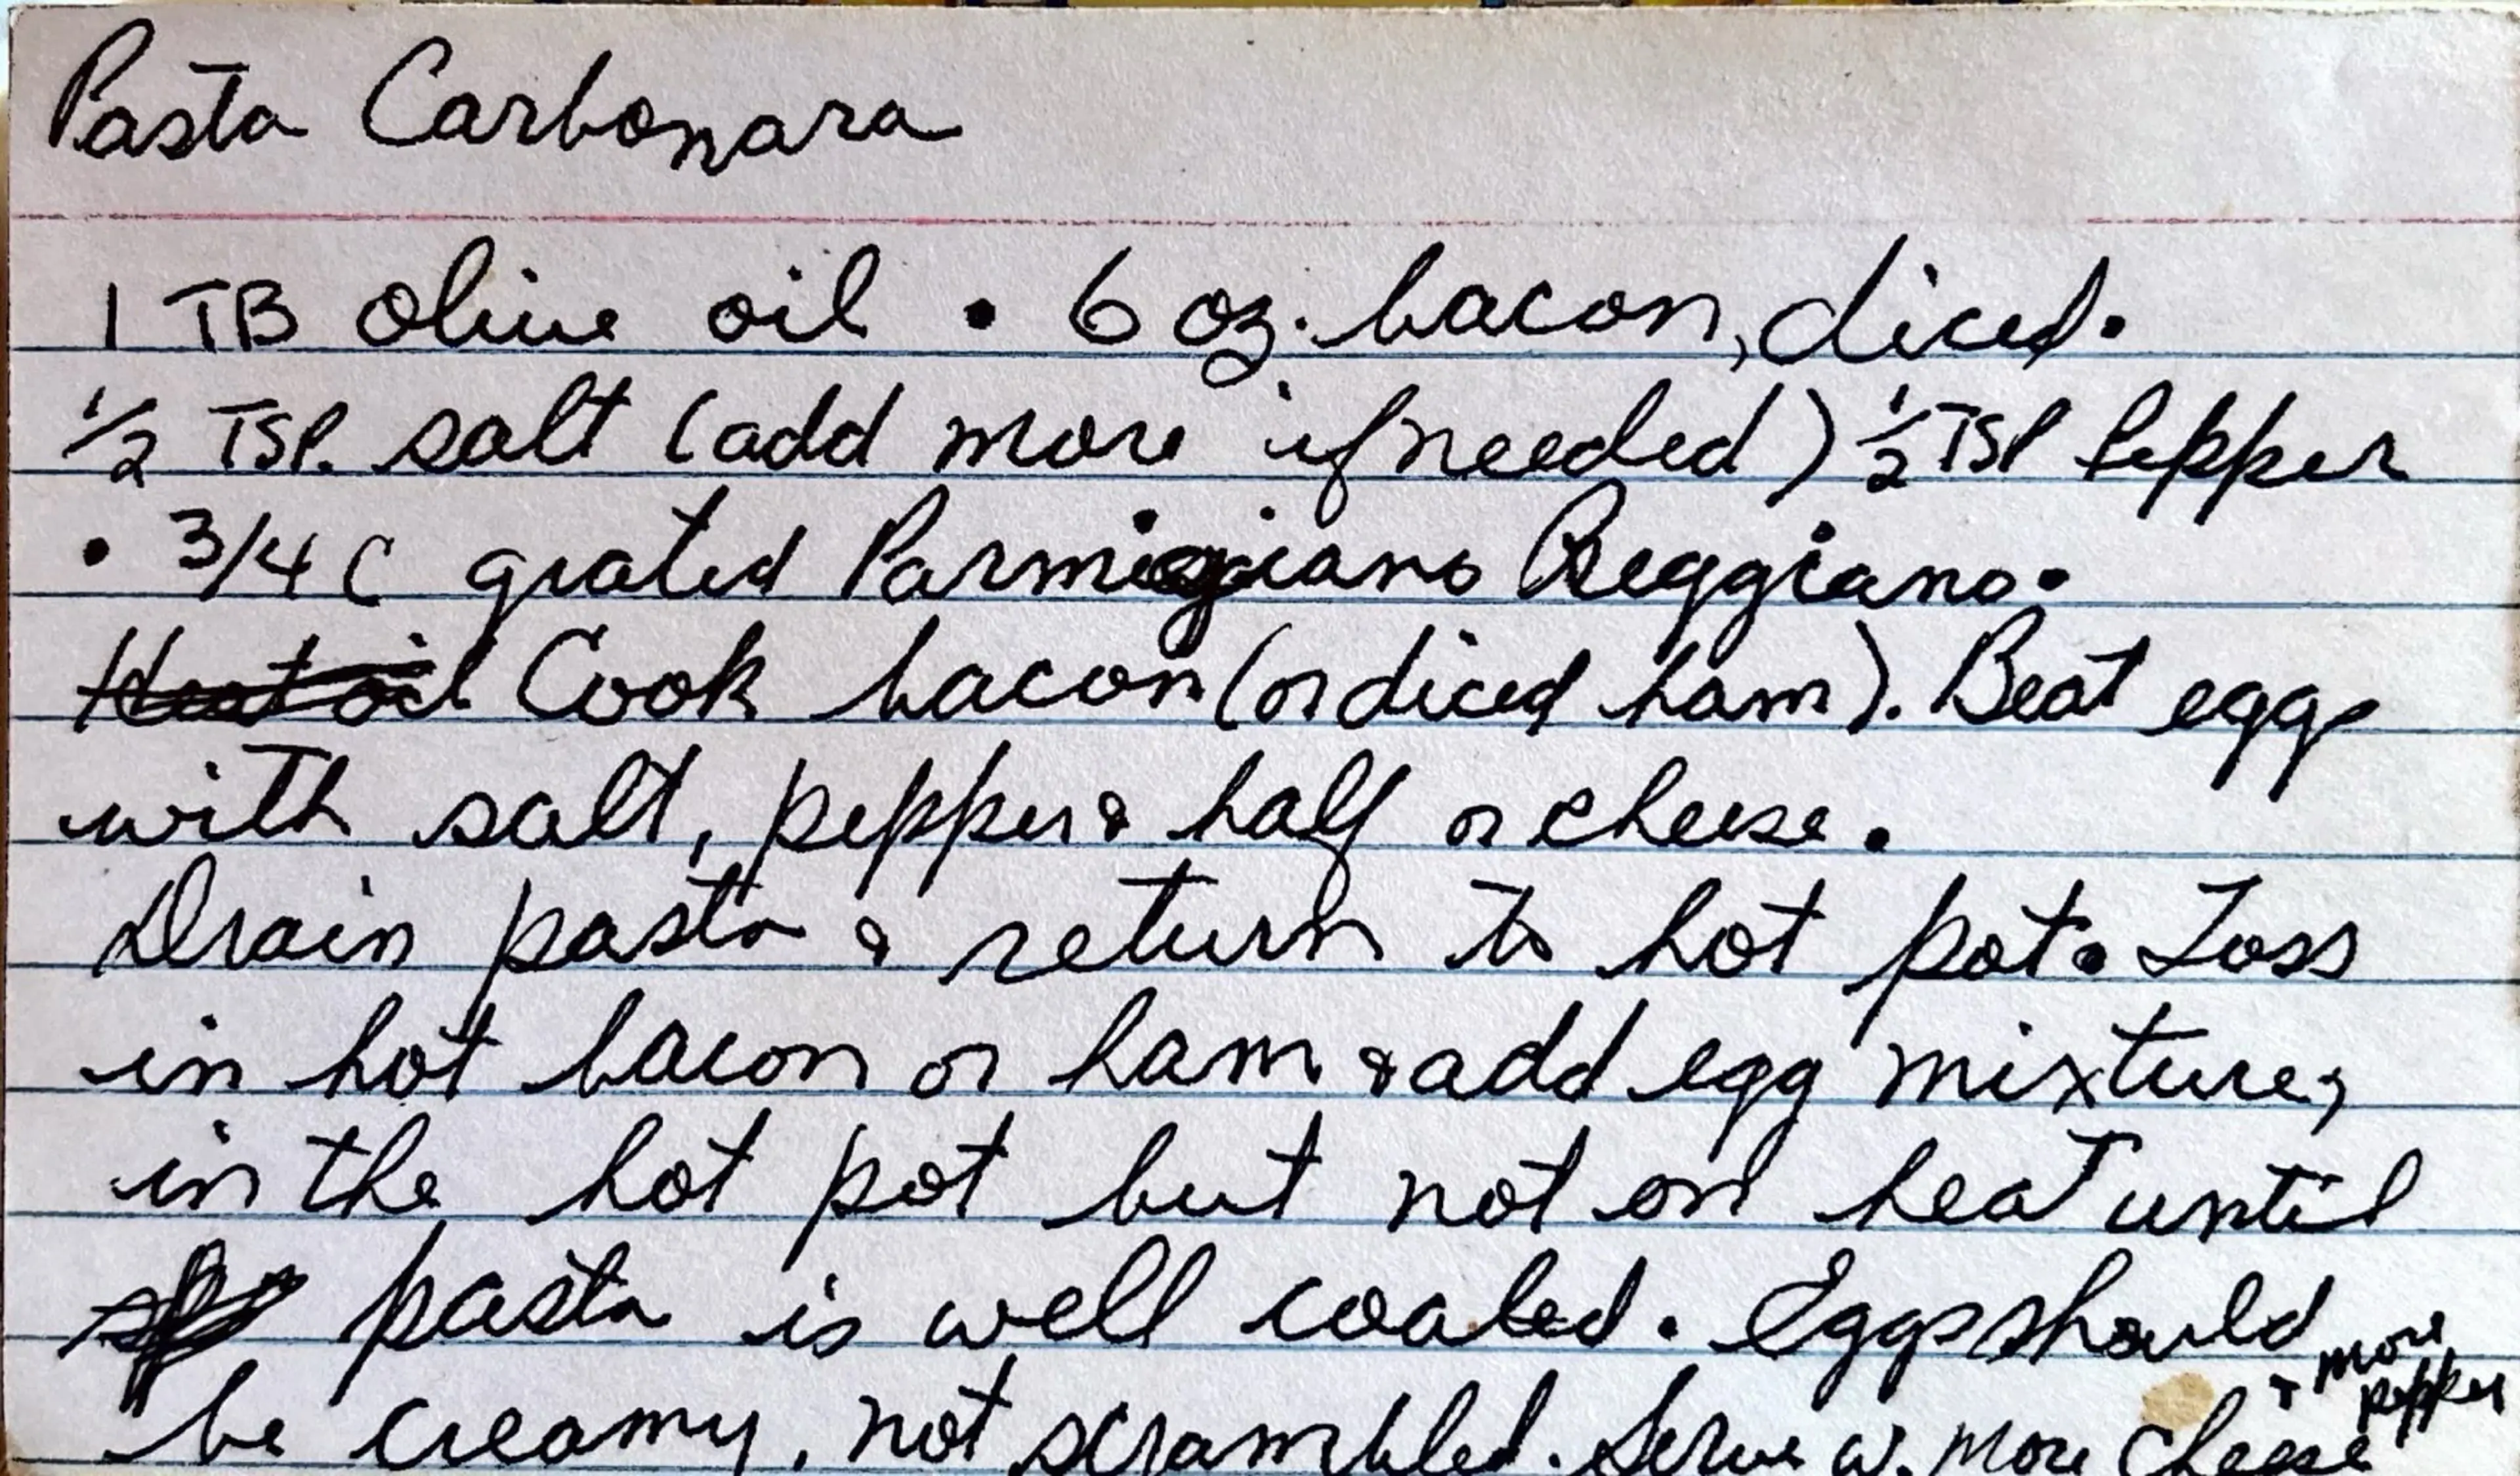 Pasta Carbonara
1 TB olive oil • 6 oz. bacon, diced.
1/2 TSP. salt (add more if needed) 1/2 TSP Pepper
• 3/4 C grated Parmigiano Reggiano.
Heat oil Cook bacon (or diced ham). Beat eggs
with salt, pepper & half or cheese.
Drain pasta & return to hot pot. Toss
in hot bacon or ham & add egg mixture,
in the hot pot but not on heat until
pasta is well coated. Eggs should
be creamy, not scrambled. Serve w. more cheese
+ more
pepper